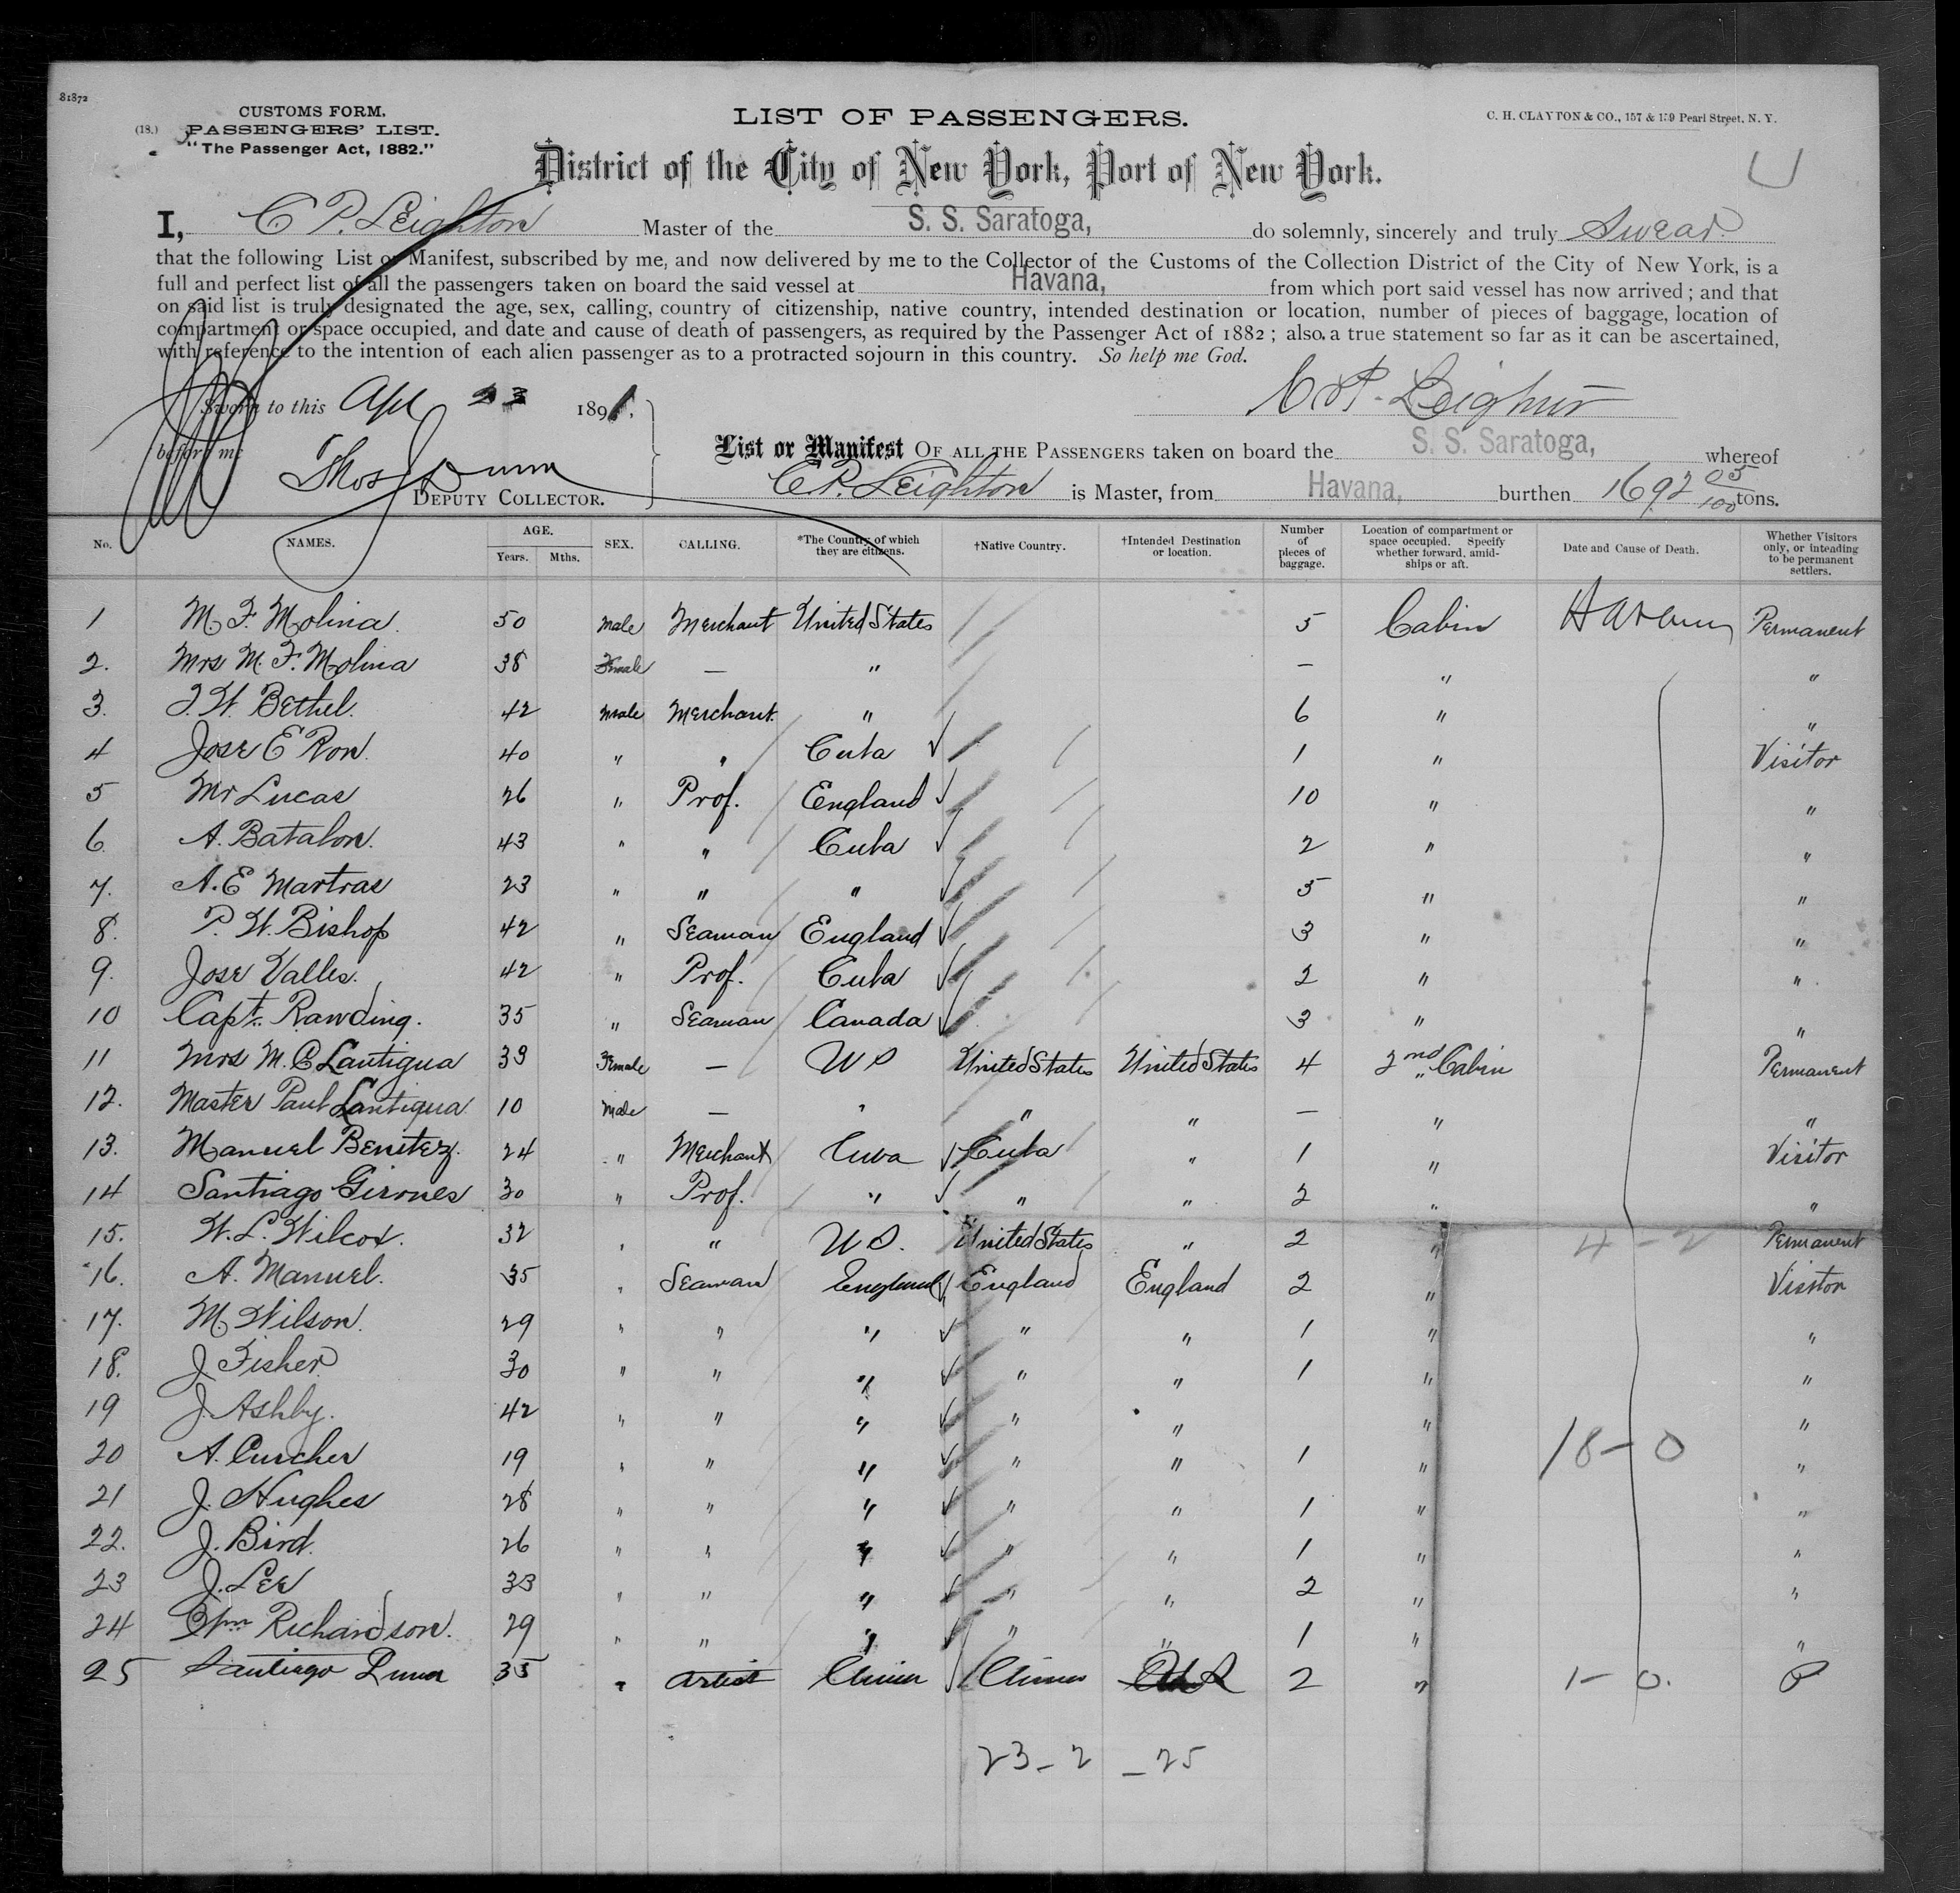 81872
CUSTOMS FORM.
(18.) PASSENGERS' LIST.
"The Passenger Act, 1882."
LIST OF PASSENGERS.
C. H. CLAYTON & CO., 157 & 159 Pearl Street, N. Y.
District of the City of New York, Port of New York.
I, C P. Leighton Master of the S. S. Saratoga, do solemnly, sincerely and truly Swear
that the following List or Manifest, subscribed by me, and now delivered by me to the Collector of the Customs of the Collection District of the City of New York, is a
full and perfect list of all the passengers taken on board the said vessel at Havana, from which port said vessel has now arrived; and that
on said list is truly designated the age, sex, calling, country of citizenship, native country, intended destination or location, number of pieces of baggage, location of
compartment or space occupied, and date and cause of death of passengers, as required by the Passenger Act of 1882; also, a true statement so far as it can be ascertained,
with reference to the intention of each alien passenger as to a protracted sojourn in this country. So help me God.
Sworn to this Apl 23 1891. C P. Leighton
before me
Thos Dunn
DEPUTY COLLECTOR.
List or Manifest OF ALL THE PASSENGERS taken on board the S. S. Saratoga, whereof
C.P. Leighton is Master, from Havana, burthen 1692 05/100 tons.
No. NAMES. AGE. Years. Mths. SEX. CALLING. *The Country of which they are citizens. †Native Country. †Intended Destination or location. Number of pieces of baggage. Location of compartment or space occupied. Specify whether forward, amidships or aft. Date and Cause of Death. Whether Visitors only, or intending to be permanent settlers.
1 M. F. Molina. 50 Male Merchant United States 5 Cabin Permanent
2. Mrs M. F. Molina 38 Female — " — " "
3. J. W. Bethel. 42 Male Merchant. " 6 " "
4 Jose E Ron. 40 " " Cuba 1 " Visitor
5 Mr Lucas 26 " Prof. England 10 " "
6. A. Batalon. 43 " " Cuba 2 " "
7. A. E Martras 23 " " " 5 " "
8. P. W. Bishop 42 " Seaman England 3 " "
9. Jose Valles. 42 " Prof. Cuba 2 " "
10 Capt. Rawding. 35 " Seaman Canada 3 " "
11 Mrs M. C Lantigua 39 Female — U S United States United States 4 2nd Cabin Permanent
12. Master Paul Lantigua 10 Male — " " " — " "
13. Manuel Benitez. 24 " Merchant Cuba Cuba " 1 " Visitor
14 Santiago Girones 30 " Prof. " " " 2 " "
15. W. L. Wilcox. 32 " " U S. United States " 2 " 4 - 2 Permanent
16. A. Manuel. 35 " Seaman England England England 2 " Visitor
17. M. Wilson. 29 " " " " " 1 " "
18. J. Fisher 30 " " " " " 1 " "
19 J. Ashby. 42 " " " " " " "
20 A. Curcher 19 " " " " " 1 " 18 - 0 "
21 J. Hughes 28 " " " " " 1 " "
22. J. Bird. 26 " " " " " 1 " "
23 J. Lee 33 " " " " " 2 " "
24 Wm Richardson. 29 " " " " " 1 " "
25 Santiago 35 " Artist China China 2 " 1 - 0. P
23 - 2 - 25